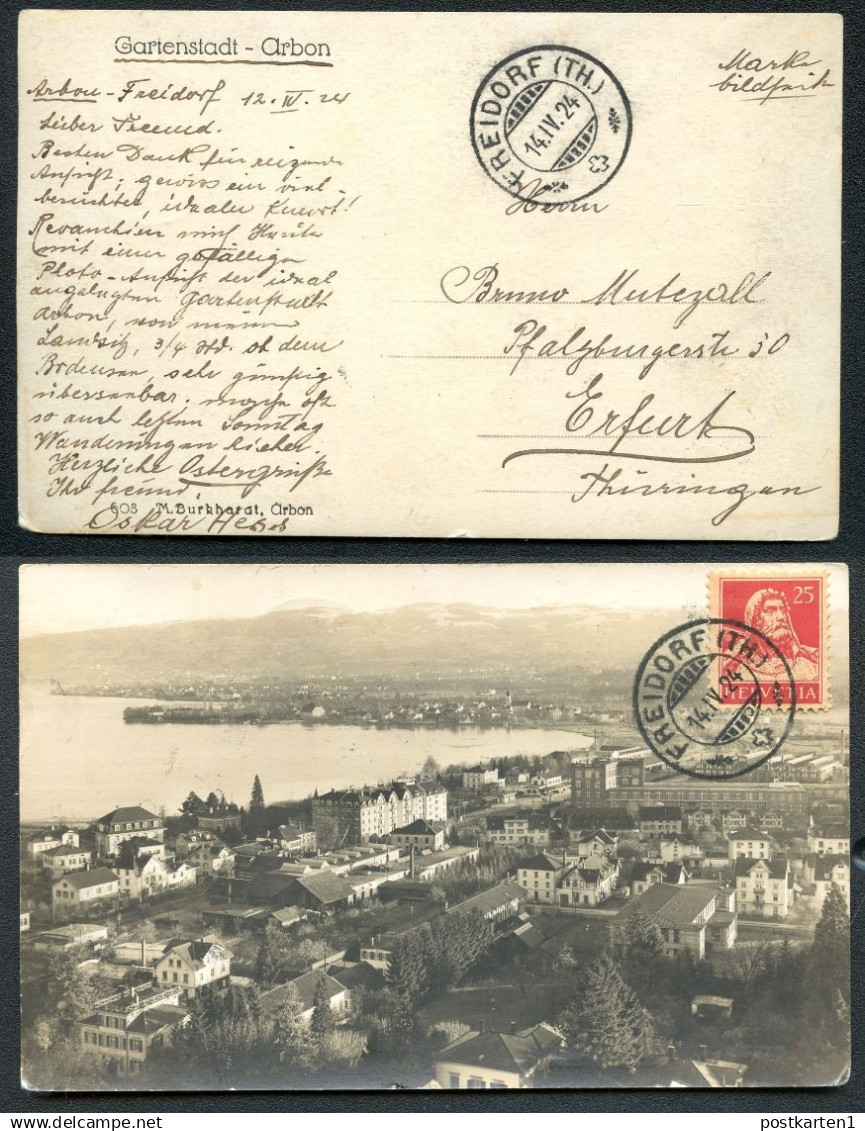 Gartenstadt - Arbon
Arbon - Freidorf 12. IV. 24
Lieber Freund.
Besten Dank für reizende
Ansicht, gewiss ein viel
besuchter, idealer Kurort!
Revanchien mich Heute
mit einer gefälligen
Photo - Ansicht der ideal
angelegten Gartenstadt
Arbon, von meinem
Landsitz, 3/4 Std. ob dem
Bodensee, sehr günstig
übersehbar. mache oft
so auch letzten Sonntag
Wanderungen hieher.
Herzliche Ostergrüße
Ihr freund,
Oskar Hess
603 M. Burkhardt, Arbon
FREIDORF (TH.)
14.IV.24
Marke
bildseite
Herrn
Bruno Mutezall
Pfalzburgerstr 30
Erfurt
Thüringen
25
HELVETIA
FREIDORF (TH.)
14.IV.24
postkarten1